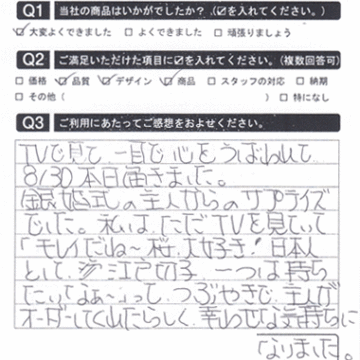 Q1 当社の商品はいかがでしたか？（☑を入れてください。）
☑大変よくできました □よくできました □頑張りましょう
Q2 ご満足いただけた項目に☑を入れてください。（複数回答可）
□価格 ☑品質 ☑デザイン ☑商品 □スタッフの対応 □納期
□その他（ ）□特になし
Q3 ご利用にあたってご感想をおよせください。
TVで見て 一目で心をうばわれて
8/30 本日届きました。
銀婚式の主人からのサプライズ
でした。私は、ただTVを見ていて
「キレイだね〜 桜、大好き！日本人
として、江戸切子 一つは持ち
たいなぁ〜」って つぶやきで 主人が
オーダーしてくれたらしく 幸わせな気持ちに
なりました。